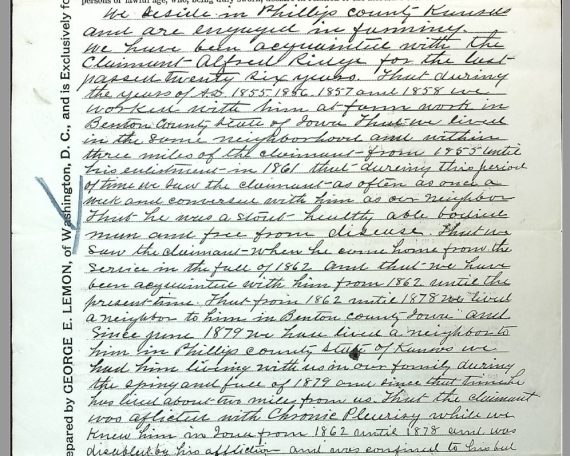 persons of lawful age, who, being duly sworn,
We reside in Phillips county Kansas
and are engaged in farming.
We have been acquainted with the
Claimant Alfred Ridge for the last
passed twenty six years. That during
the years of A.D. 1855 1856. 1857 and 1858 we
worked with him at farm work in
Benton County State of Iowa That we lived
in the same neighborhood and within
three miles of the claimant from 1855 until
his enlistment in 1861 that during this period
of time we saw the claimant as often as once a
week and conversed with him as our neighbor
That he was a stout healthy able bodied
man and free from disease. That we
saw the claimant when he come home from the
service in the fall of 1862 and that we have
been acquainted with him from 1862 until the
present time. That from 1862 until 1878 we lived
a neighbor to him in Benton county Iowa and
Since June 1879 we have lived a neighbor to
him in Phillips county State of Kansas we
had him living with us in our family during
the spring and fall of 1879 and since that time he
has lived about two miles from us. That the claimant
was aflicted with Chronic Pleurisy while we
knew him in Iowa from 1862 until 1878 and was
disabled by his affliction and was confined to his bed
epared by GEORGE E. LEMON, of Washington, D. C., and is Exclusively fo